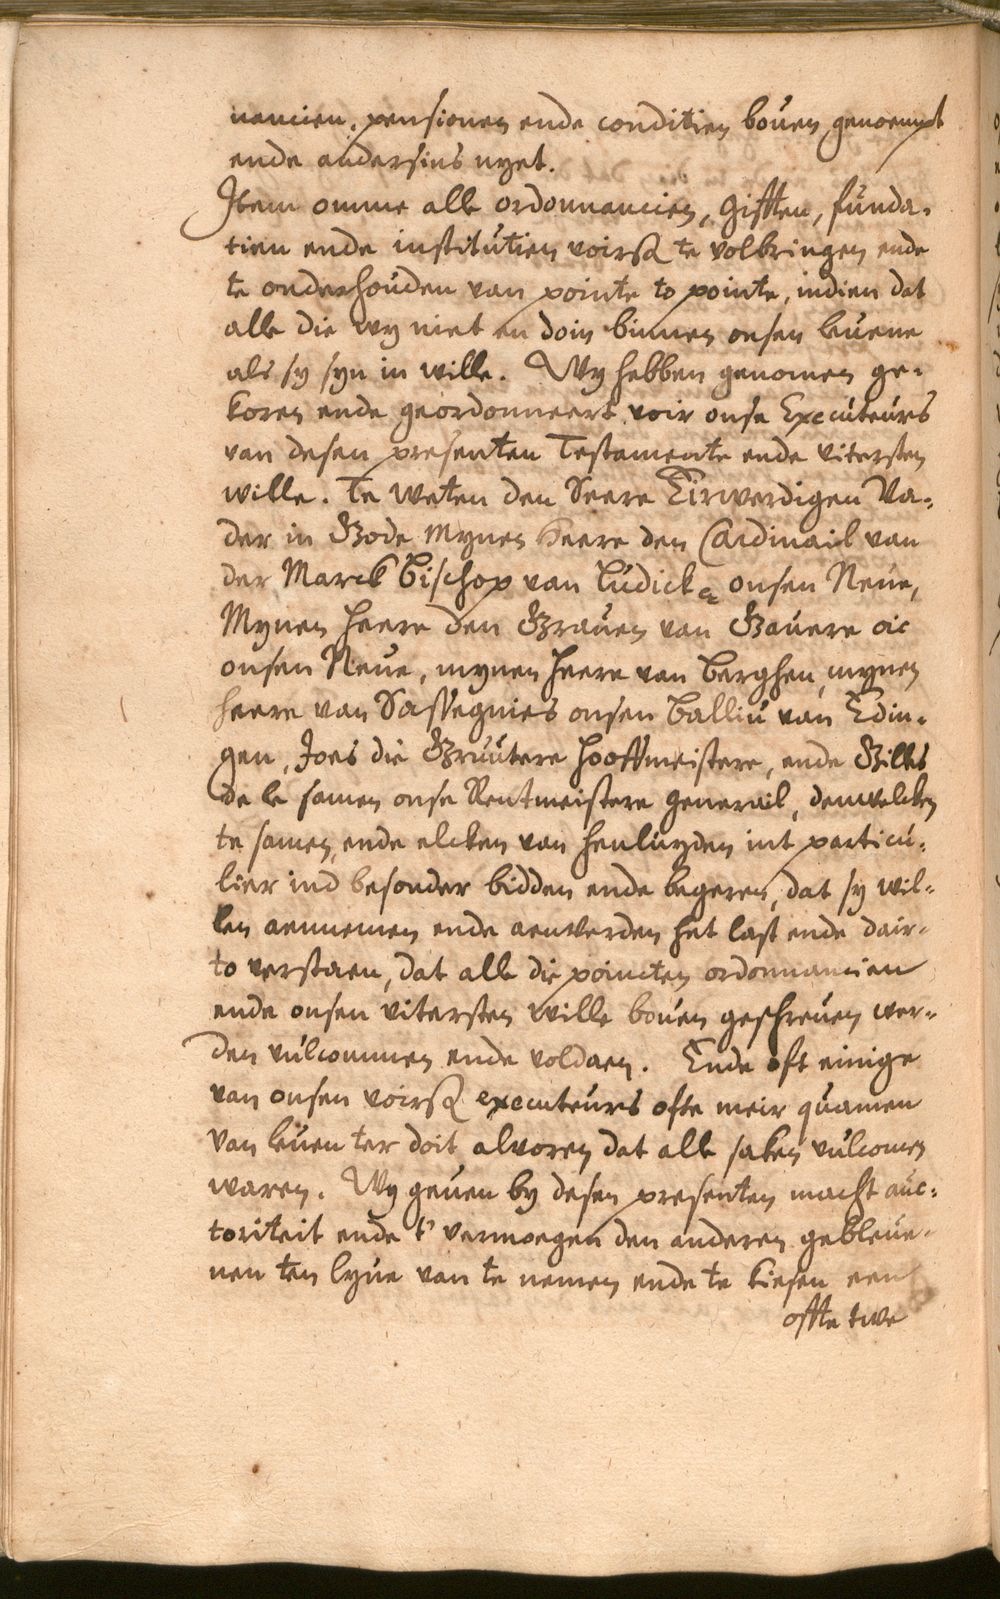 nancien, pensionen ende conditien bouen genoempt
ende andersins nyet.
Item omme alle ordonnancien, Gifften, funda-
tien ende institutien voirsz te volbringen ende
te onderhouden van pointe to pointe, indien dat
alle die wy niet en doin binnen onsen leuene
als sy syn in wille. Wy hebben genomen ge-
koren ende geordonneert voir onse Executeurs
van desen presenten Testamente ende vitersten
wille. Te weten den Seere Eirwerdigen Va-
der in Gode Mynen heere den Cardinail van
der Marck Bischop van Ludick onsen Neue,
Mynen heere den Grauen van Gauere oic
onsen Neue, mynen heere van Berghen, mynen
heere van Sassegnies onsen Balliu van Edin-
gen, Joes die Gruutere hooffmeistere, ende Gilles
de le samen onse Rentmeistere Generail, denwelcken
te samen ende elcken van henluyden int particu-
lier ind besonder bidden ende begeren, dat sy wil-
len aennemen ende aenverden het last ende dair-
to verstaen, dat alle die poincten ordonnancien
ende onsen vitersten wille bouen geschreuen wer-
den vulcommen ende voldaen. Ende oft einige
van onsen voirsz executeurs ofte meir quamen
van leuen ter doit alvoren dat alle saken vulcomen
waren. Wy geuen by desen presenten macht auc-
toriteit ende t' vermoegen den anderen gebleue-
nen ten lyue van te nemen ende te kiesen een
offte twe